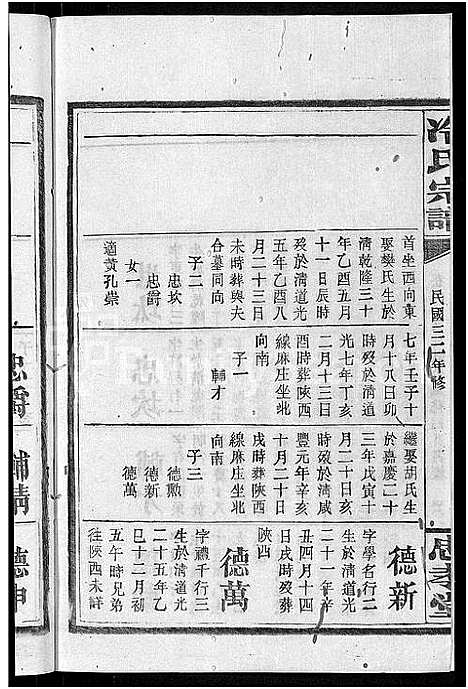 冷氏宗譜
民國三二年修
忠孝堂
首坐西向東
娶樊氏生於
清乾隆三十
年乙酉五月
十一日辰時
殁於清道光
五年乙酉八
月二十三日
未時葬與夫
合墓同向
子二
忠坎
忠爵
女一
適黄孔崇
七年壬子十
月十八日卯
時殁於清道
光七年丁亥
二月十三日
酉時葬陝西
線麻庄坐北
向南
子一
輔才
繼娶胡氏生
於嘉慶二十
三年戊寅十
月二十日亥
時殁於清咸
豐元年辛亥
十月二十日
戌時葬陝西
線麻庄坐北
向南
子三
德勲
德新
德萬
德新
字學名行二
生於清道光
二十一年辛
丑四月十四
日戌時殁葬
陝西
德萬
字禮千行三
生於清道光
二十五年乙
巳十二月初
五午時兄弟
往陝西未詳
忠爵
輔清
德申